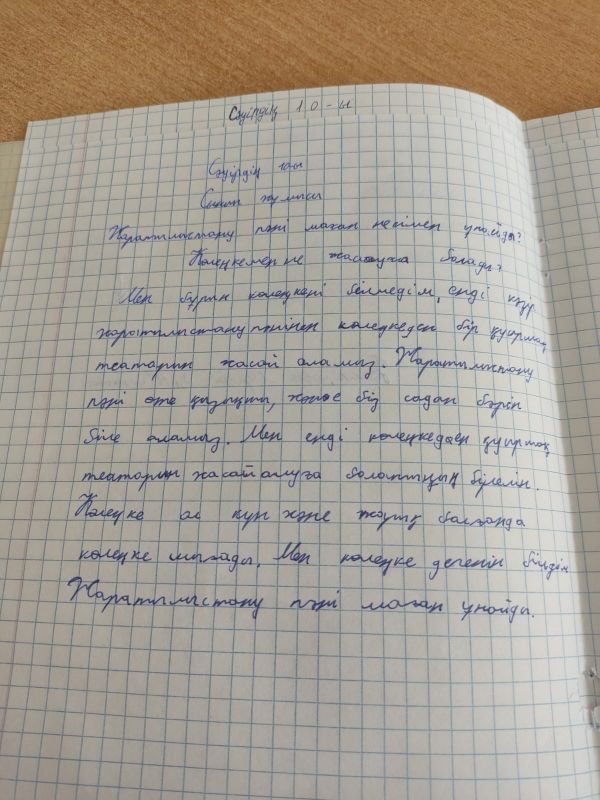 Сәуірдің 10-ы
Сәуірдің 10-ы
Сынып жұмысы
Жаратылыстану пәні маған несімен ұнайды?
Көлеңкемен не жасауға болады?
Мен бұрын көлеңкені білмедім, енді
жаратылыстану пәнінен көлеңкеден бір қуыршақ
театарын жасай аламыз. Жаратылыстану
пәні өте қызықты, және біз содан бәрін
біле аламыз. Мен енді көлеңкеден қуыршақ
театарын жасай алуға болатының білемін.
Көлеңке ол күн және жарық болғанда
көлеңке шығады. Мен көлеңке дегенін білдім
Жаратылыстану пәні маған ұнайды.